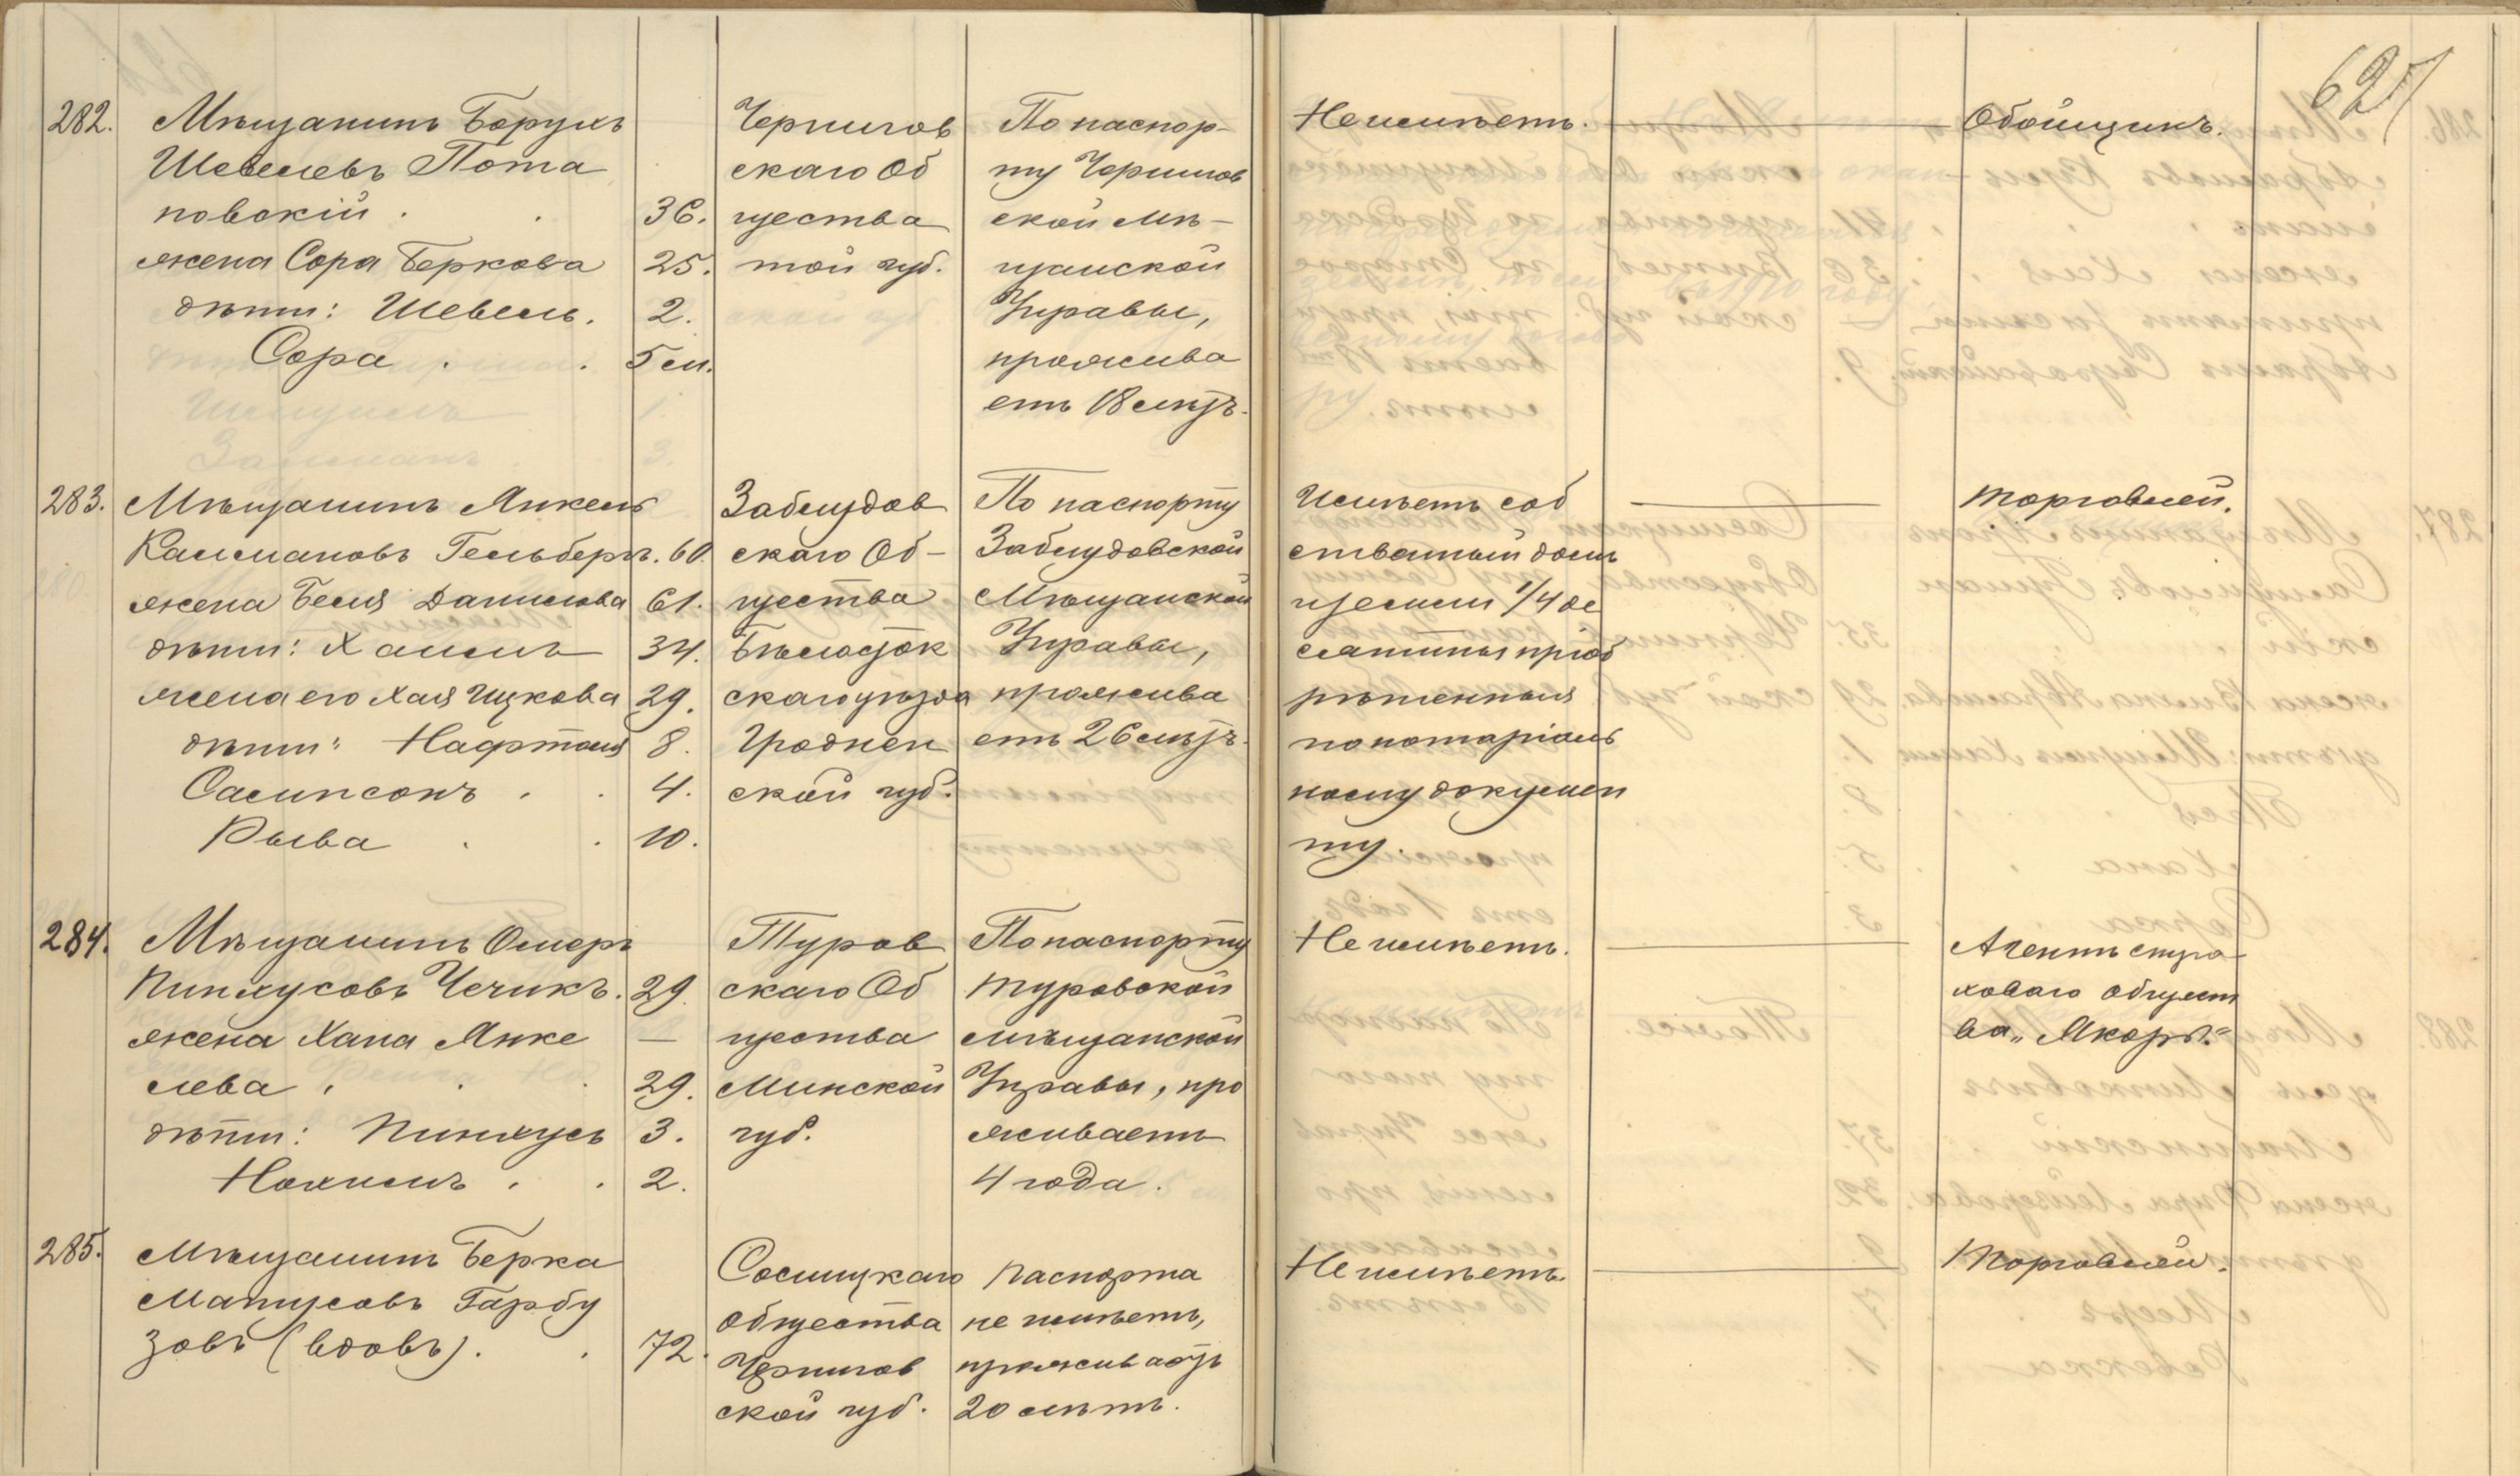 627
282.
Мѣщанинъ Борухъ
Шевелевъ Пота
повскій . . 36.
жена Сора Беркова 25.
дѣти: Шевель. 2.
Сора . . 5 м.
Чернигов
скаго Об
щества
той губ.
По паспор-
ту Чернигов
ской Мѣ-
щанской
Управы,
прожива
етъ 18 мѣс.
Не имѣетъ.
Обойщикъ.
283.
Мѣщанинъ Янкель
Калмановъ Гельберъ. 60.
жена Беля Данилова 61.
дѣти: Хаимъ 34.
жена его Хая Ицкова 29.
дѣти: Нафтоля 8.
Сампсонъ . . 4.
Рыва . . 10.
Заблудов
скаго Об-
щества
Бѣлосток
скаго уѣзда
Гроднен
ской губ.
По паспорту
Заблудовской
Мѣщанской
Управы,
прожива
етъ 26 мѣс.
Имѣетъ соб
ственный домъ
и земли 1/4 де
сятины пріоб
рѣтенныя
по нотаріаль
ному докумен
ту.
торговлей.
284.
Мѣщанинъ Омеръ
Пинхусовъ Чечикъ. 29.
жена Хана Янке —
лева . . 29.
дѣти: Пинхусъ 3.
Нохимъ . . 2.
Туров
скаго Об
щества
Минской
губ.
По паспорту
Туровской
мѣщанской
Управы, про
живаетъ
4 года.
Не имѣетъ.
Агентъ стра
ховаго общест
ва „Якорь“
285.
Мѣщанинъ Берка
Матусовъ Гарбу
зовъ (вдовъ). . 72.
Сосницкаго
общества
Чернигов
ской губ.
паспорта
не имѣетъ,
проживаетъ
20 лѣтъ.
Не имѣетъ.
торговлей.